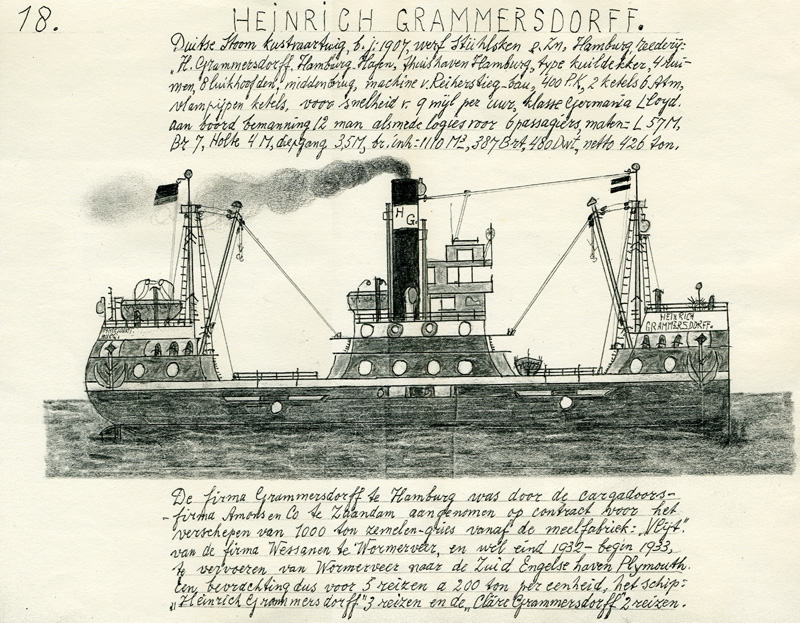 18.
HEINRICH GRAMMERSDORFF.
Duitse stoom kustvaartuig, b.j. 1907, werf Stühlsken & Zn, Hamburg, reederij:
"H. Grammersdorff. Hamburg. Hafen, thuishaven Hamburg, type kuildekker, 4 rui-
men, 8 luikhoofden, middenbrug, machine v. Reiherstieg-bau, 400 P.K, 2 ketels 6 Atm,
vlampijpen ketels, voor snelheid v. 9 mijl per uur, klasse Germania Lloyd.
aan boord bemanning 12 man alsmede logies voor 6 passagiers, maten = L 57 M,
Br 7, Holte 4 M, diepgang 3,5 M, br. inh = 1110 M3, 387 Brt, 480 Dwt, netto 426 ton.
H
G.
HEINRICH
GRAMMERSDORFF.
De firma Grammersdorff te Hamburg was door de cargadoors-
-firma Amons en Co te Zaandam aangenomen op contract voor het
verschepen van 1000 ton zemelen-gries vanaf de meelfabriek: "Vlijt".
van de firma Wessanen te Wormerveer, en wel eind 1932 - begin 1933,
te vervoeren van Wormerveer naar de Zuid Engelse haven Plymouth.
Een bevrachting dus voor 5 reizen a 200 ton per eenheid, het schip:
"Heinrich Grammersdorff" 3 reizen en de "Cläre Grammersdorff" 2 reizen.